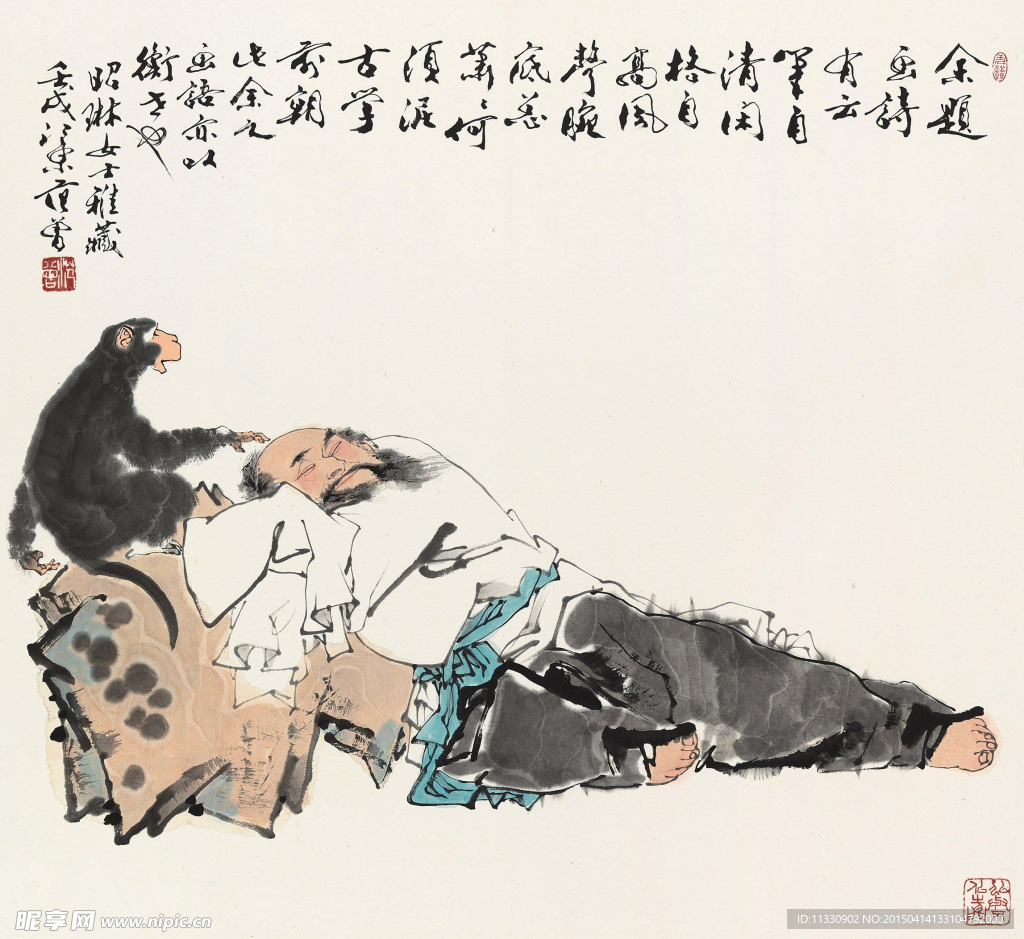 余題
畫詩
有云
筆自
清閑
格自
高風
聲腕
底
蕭々何
須泥
古学
前朝
此余之
畫語亦以
衡
昭琳女士雅藏
壬戌江東范曾
昵享网 www.nipic.cn
ID:11330902 NO:20150414133104792000